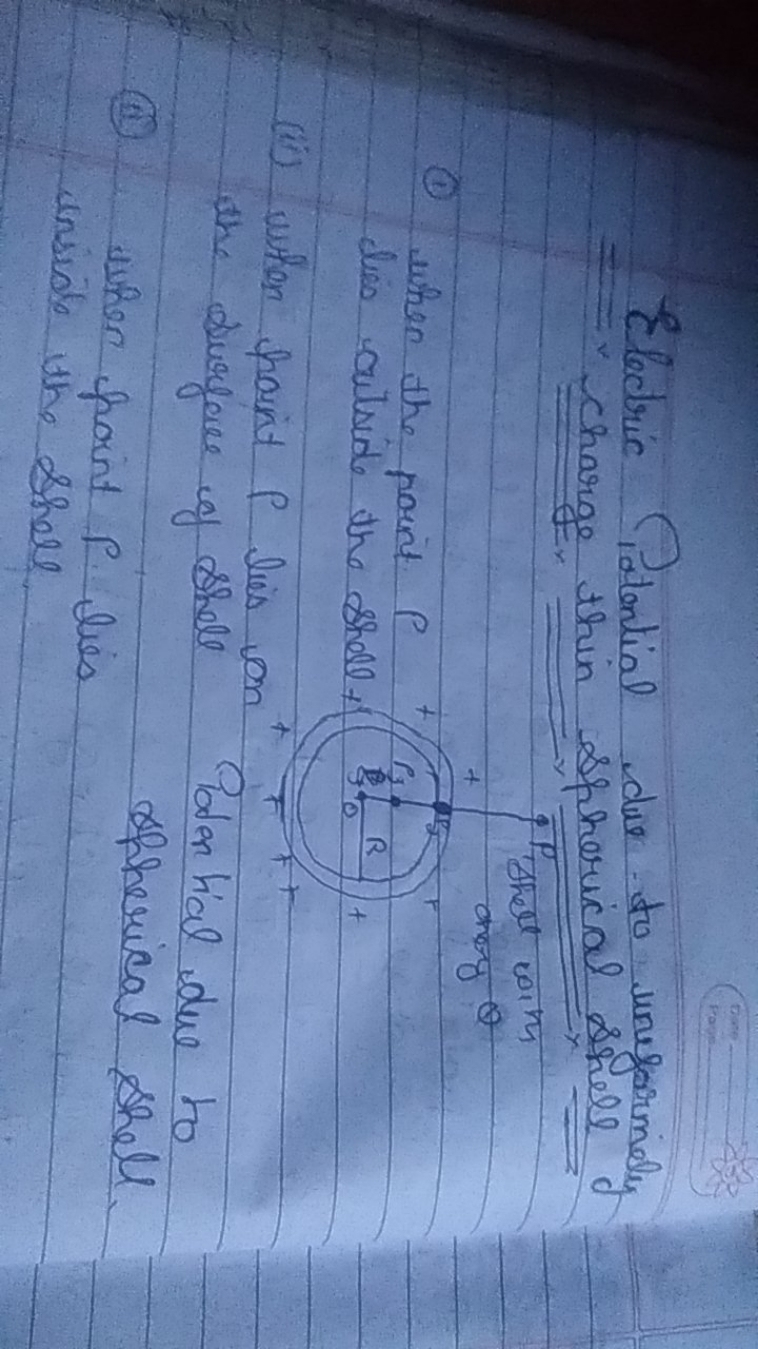 Date
Page
Electric Potential due to uniformly
charge thin spherical shell
① when the point P
lies outside the shell
(ii) when point P lies on
the surface of shell
② when point P lies
inside the shell
P
shell with
charg Q
R
O
+ + + + + + + + +
Potential due to
spherical shell.